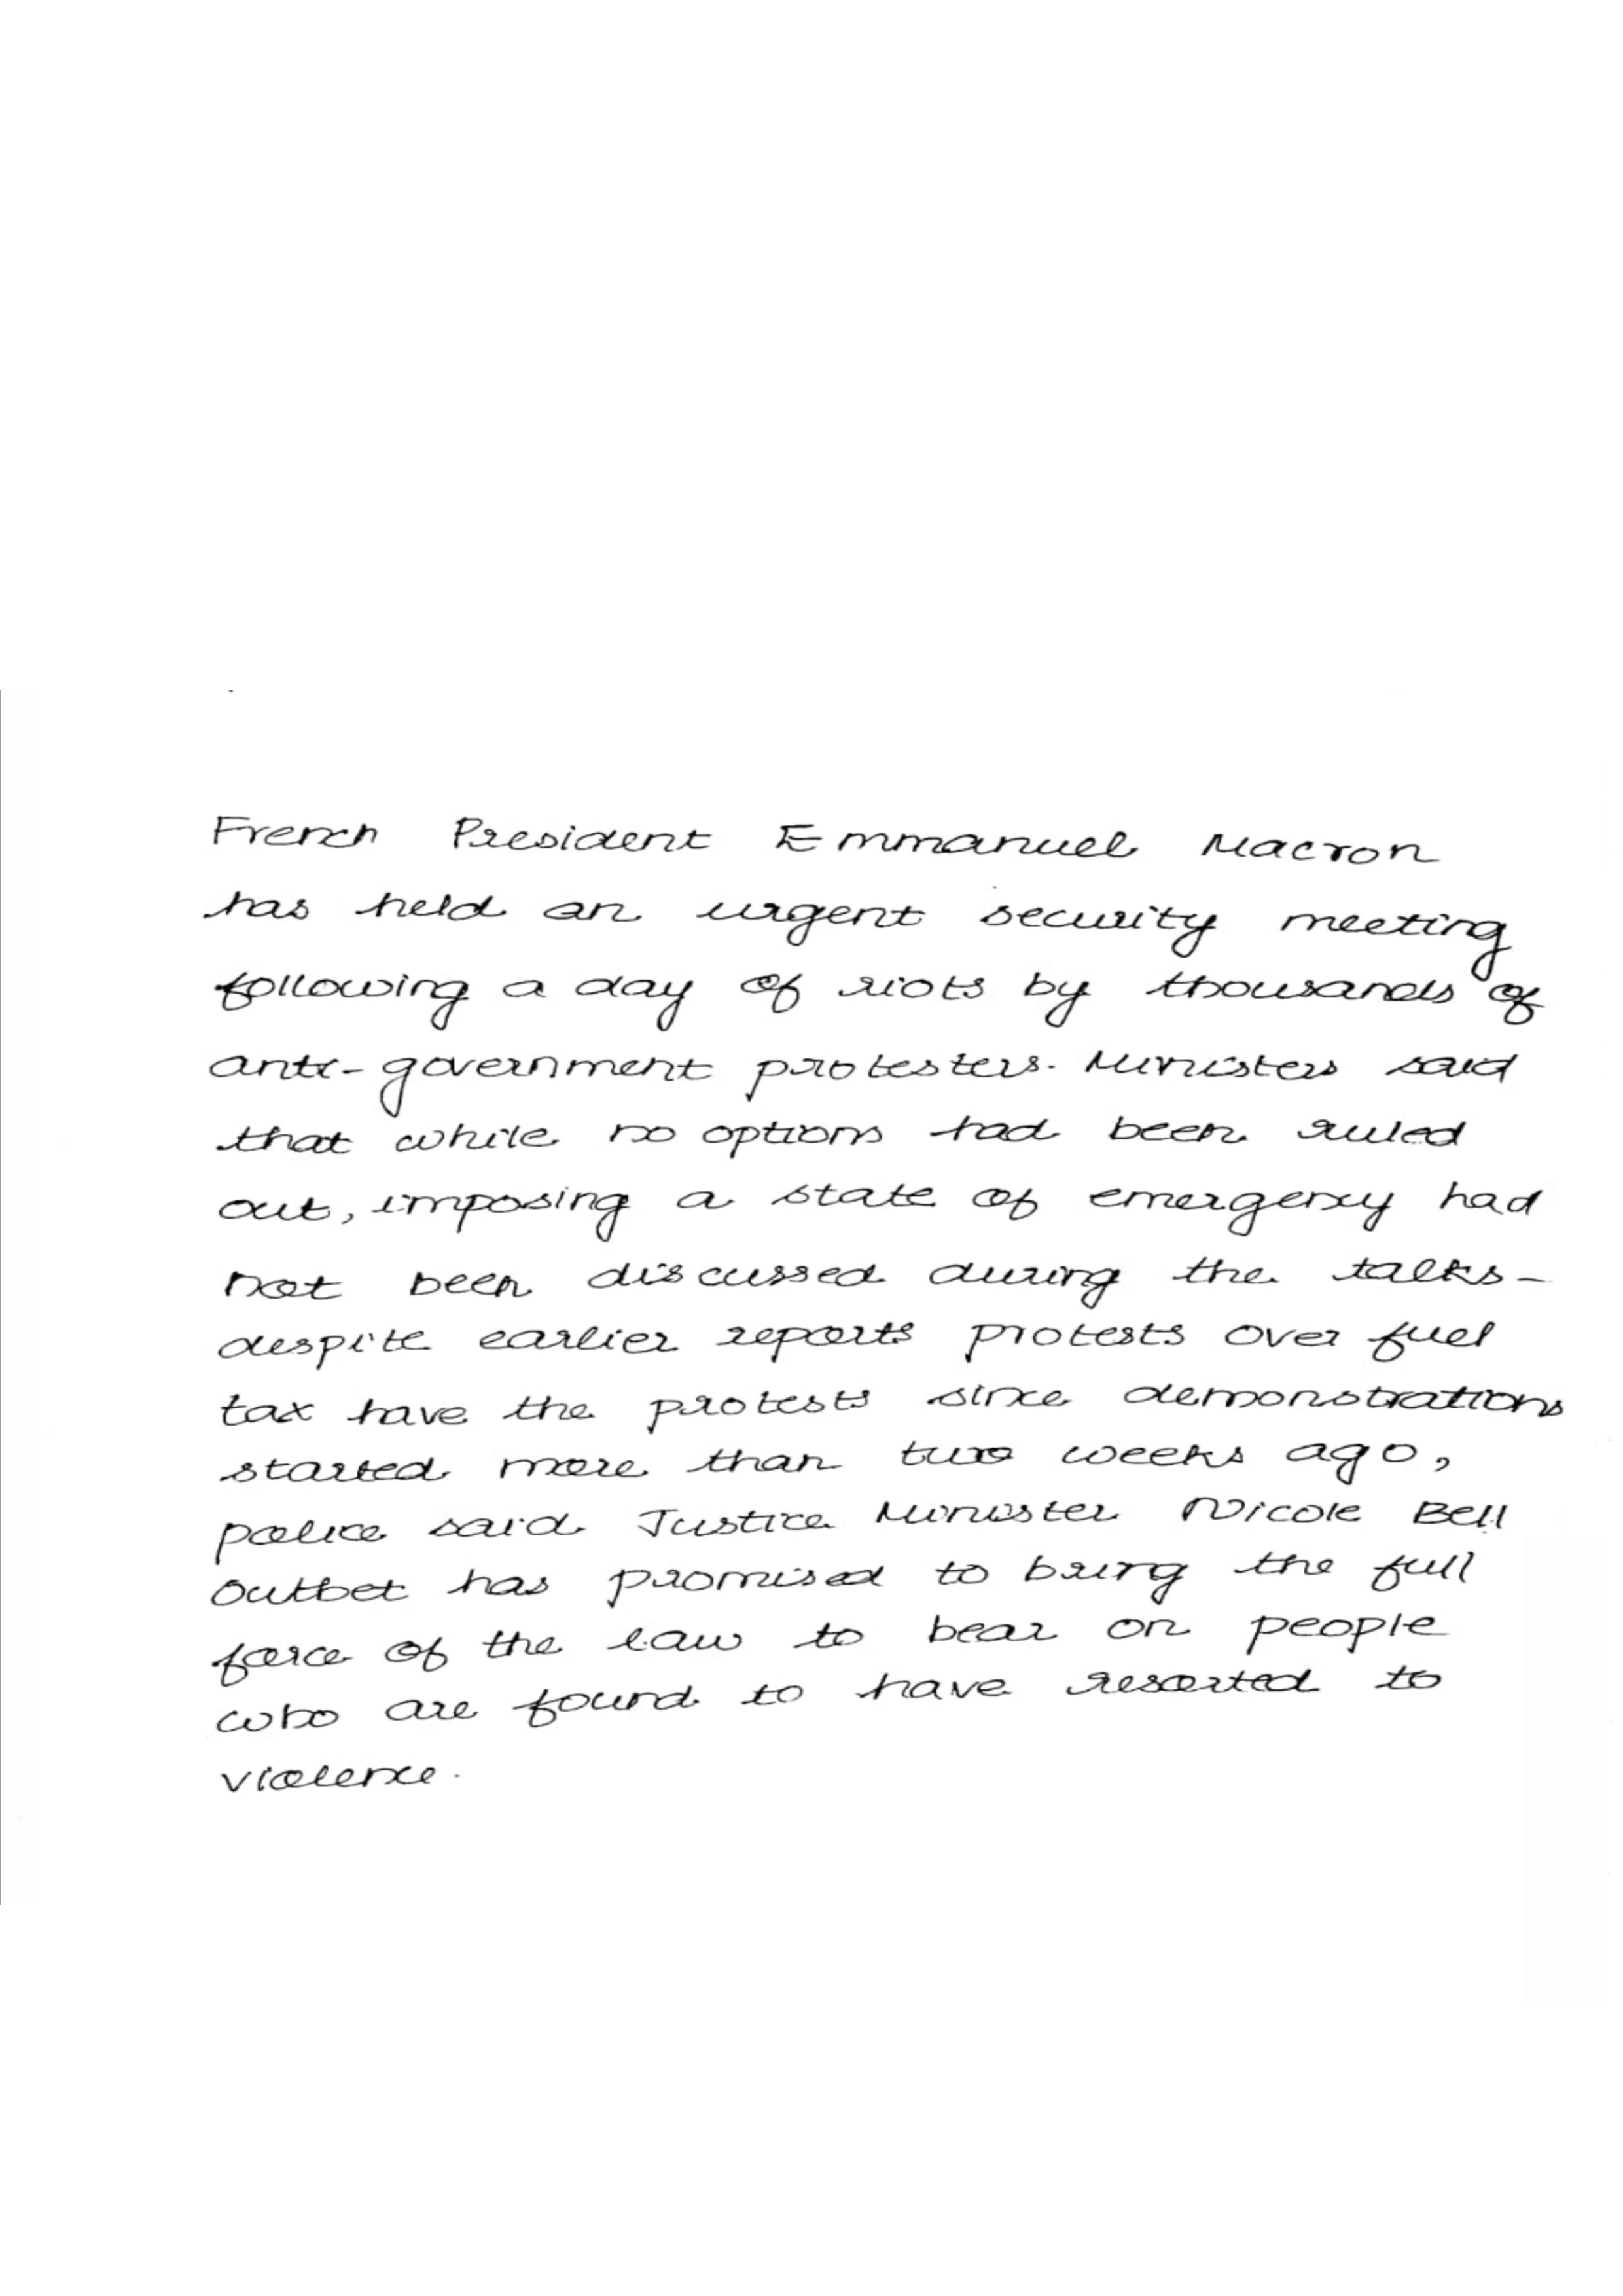 French President Emmanuel Macron
has held an urgent security meeting
following a day of riots by thousands of
anti-government protesters. Ministers said
that while no options had been ruled
out, imposing a state of emergency had
not been discussed during the talks-
despite earlier reports protests over fuel
tax have the protests since demonstrations
started more than two weeks ago,
police said Justice Minister Nicole Bell
outbet has promised to bring the full
force of the law to bear on people
who are found to have resorted to
violence.